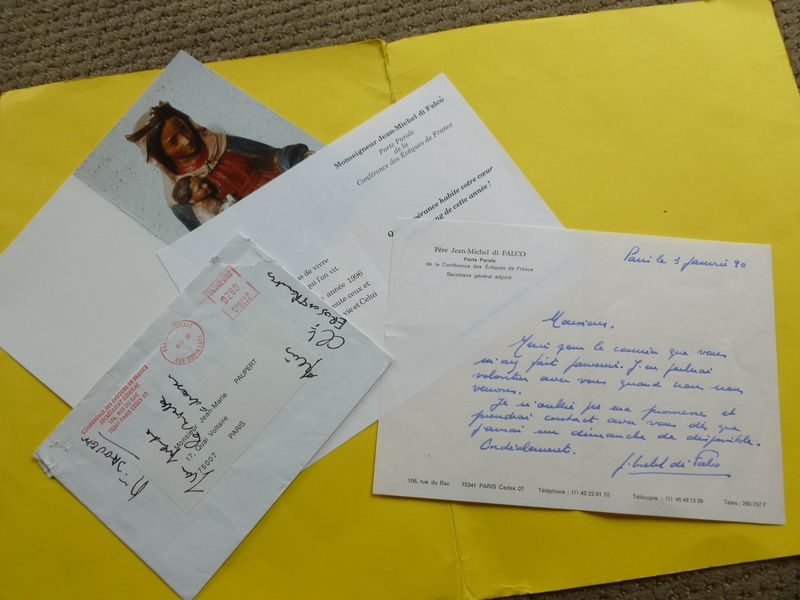 Monseigneur Jean-Michel di Falco
Porte Parole
de la
Conférence des Evêques de France
pérance habite votre cœur
ng de cette année !
s de vivre
qui l'on vit.
année 1996
oute ceux et
vie et Celui
Père Jean-Michel di FALCO
Porte Parole
de la Conférence des Évêques de France
Secrétaire général adjoint
Paris le 3 janvier 90
Monsieur,
Merci pour le courrier que vous
m'avez fait parvenir. J'en parlerai
volontiers avec vous quand nous nous
verrons.
Je n'oublie pas ma promesse et
prendrai contact avec vous dès que
j'aurai un dimanche de disponible.
Cordialement.
J. Michel di Falco
106, rue du Bac 75341 PARIS Cedex 07 Téléphone : (1) 42 22 61 70 Télécopie : (1) 45 48 13 39 Telex : 260.757 F
0280
CONFÉRENCE DES ÉVÊQUES DE FRANCE
SECRÉTARIAT GÉNÉRAL
106, RUE DU BAC
75341 PARIS CEDEX 07
Monsieur Jean-Marie PAUPERT
17, Quai Voltaire
75007 PARIS